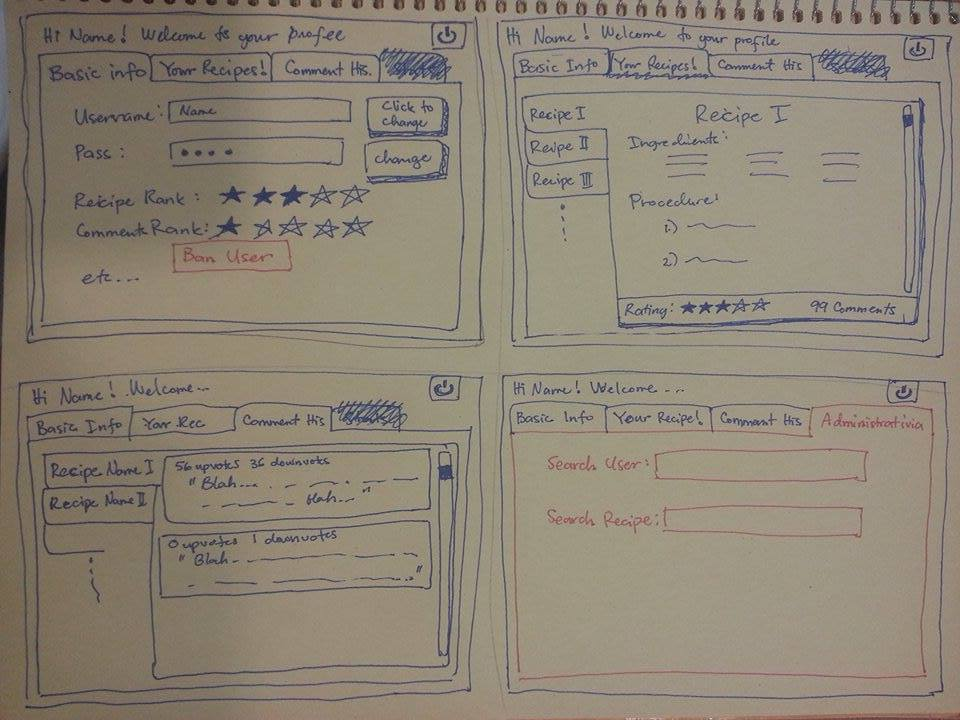 Hi Name! Welcome to your profee
Basic info Your Recipes! Comment His.
Username: Name Click to change
Pass: change
Recipe Rank:
Comments Rank:
Ban User
etc...
Hi Name! Welcome to your profile
Basic Info Your Recipes! Comment His
Recipe I
Recipe II
Recipe III
Recipe I
Ingredients:
Procedure:
1.)
2.)
Rating: 99 Comments
Hi Name! Welcome...
Basic Info Your Rec Comment His
Recipe Name I
Recipe Name II
56 upvotes 36 downvotes
"Blah...
blah..."
0 upvotes 1 downvotes
"Blah
"
Hi Name! Welcome ...
Basic Info Your Recipe! Comment His Administrativia
Search User:
Search Recipe: